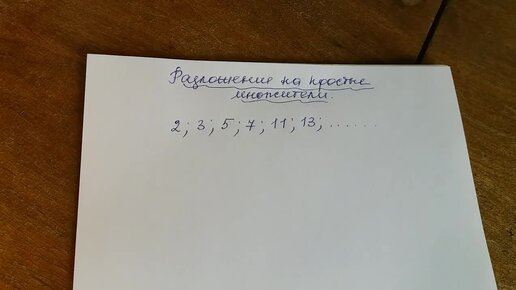 Разложение на простые
множители.
2; 3; 5; 7; 11; 13; ......